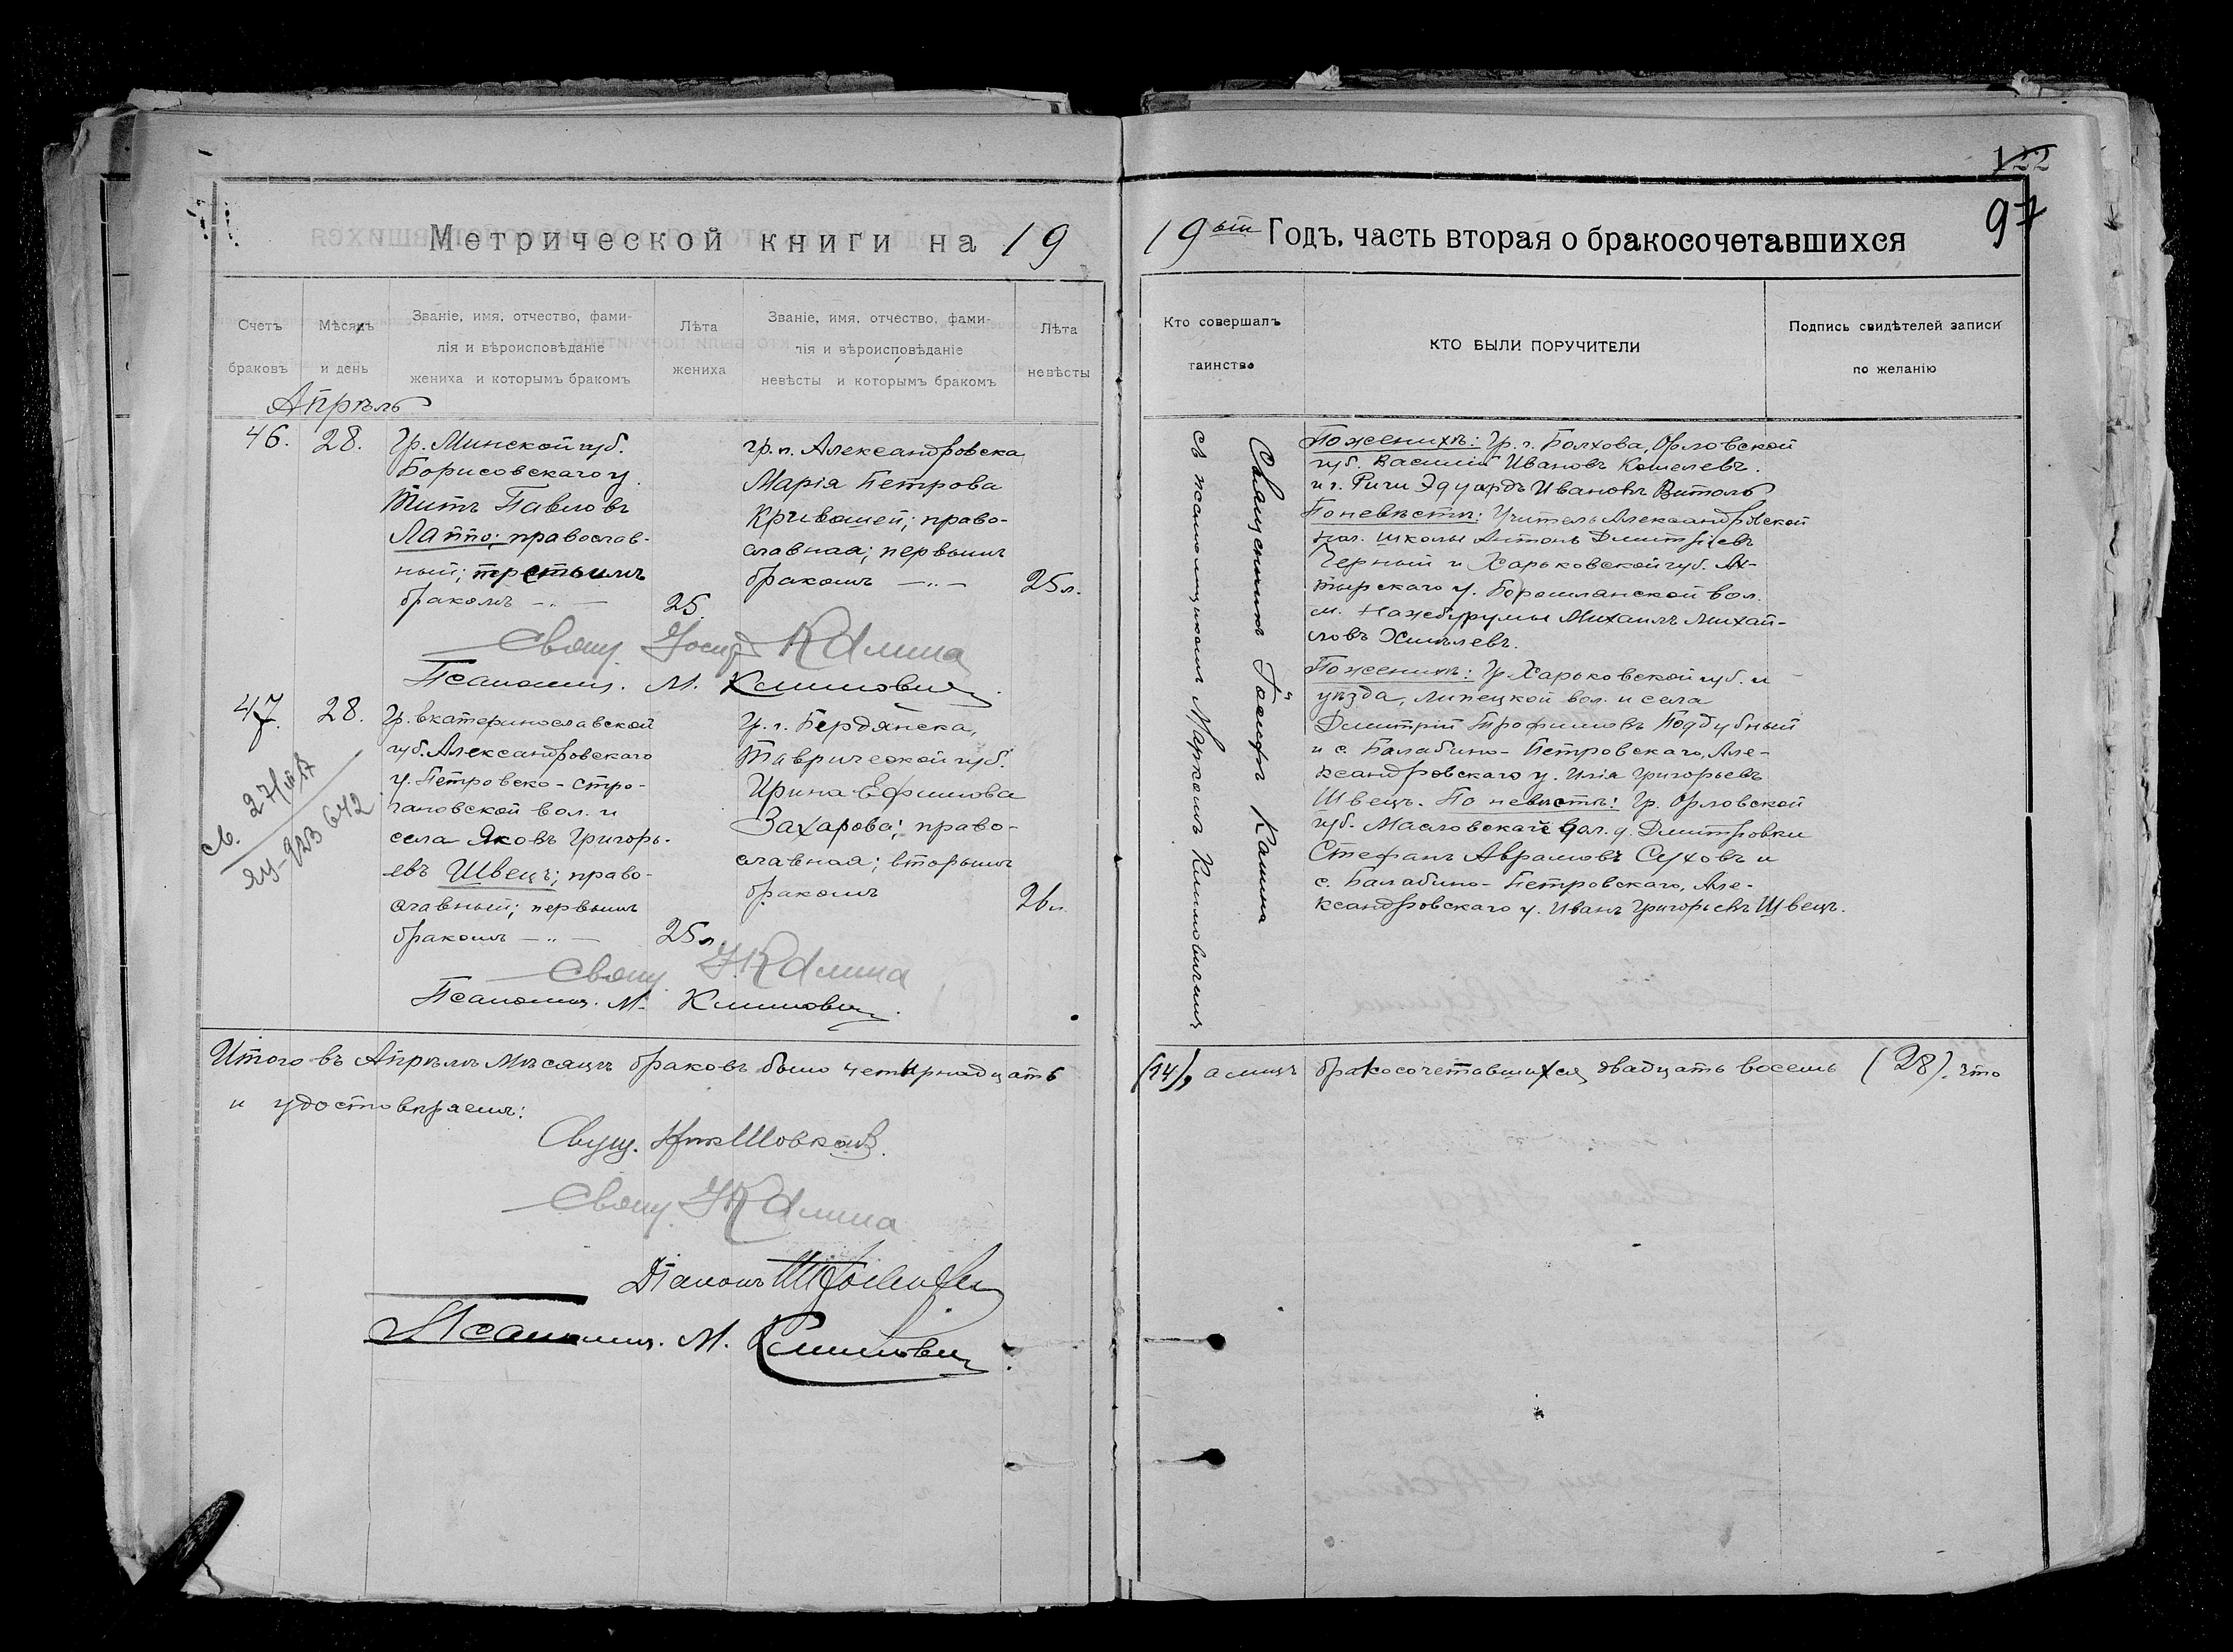 122
97
Метрической книги на 19
19ый Годъ, часть вторая о бракосочетавшихся
Счетъ браковъ
Мѣсяцъ и день
Званіе, имя, отчество, фами-
лія и вѣроисповѣданіе
жениха и которымъ бракомъ
Лѣта жениха
Званіе, имя, отчество, фами-
лія и вѣроисповѣданіе
невѣсты и которымъ бракомъ
Лѣта невѣсты
Кто совершалъ таинство
КТО БЫЛИ ПОРУЧИТЕЛИ
Подпись свидѣтелей записи
по желанію
Апрѣль
46.
28.
Гр. Минской губ.
Борисовскаго у.
Титъ Павловъ
Лаппо; православ-
ный; третьимъ
бракомъ
25
гр. г. Александровска
Марія Петрова
Кривошей; право-
славная; первымъ
бракомъ
25 л.
Свящ. Іосиф Калина
Псаломщ. М. Климович
47.
28.
Гр. Екатеринославской
губ. Александровскаго
у. Петровско-
вол. и
села Яковъ Григорь-
евъ Швецъ; право-
славный; первымъ
бракомъ
25 л.
Гр. г. Бердянска,
Таврической губ.
Ирина Ефимова
Захарова; право-
славная; вторымъ
бракомъ
26 л.
Свящ. І. Калина
Псаломщ. М. Климович.
Священникъ Іосифъ Калина
съ псаломщикомъ Маркомъ Климовичемъ
По женихѣ: Гр. г. Болхова, Орловской
губ. Василій Ивановъ Кошелевъ.
и г. Риги Эдуардъ Ивановъ Витоль
По невѣстѣ: Учитель Александровской
школы Антонъ Дмитріевъ
Черный и Харьковской губ. Ах-
тырскаго у. Боромлянской вол.
Михаилъ Михай-
ловъ Хмылевъ.
По женихѣ: Гр. Харьковской губ. и
уѣзда, Липецкой вол. и села
Дмитрій Трофимовъ Поддубный
и с. Балабино-Петровскаго, Але-
ксандровскаго у. Илія Григорьевъ
Швецъ. По невѣстѣ: Гр. Орловской
губ. Масловской вол. д. Дмитровки
Стефанъ Аврамовъ Суховъ и
с. Балабино-Петровскаго, Але-
ксандровскаго у. Иванъ Григорьевъ Швецъ.
Итого въ Апрѣлѣ мѣсяцѣ браковъ было четырнадцать (14), а лицъ бракосочетавшихся двадцать восемь (28). что
и удостовѣряемъ:
Свящ.
Свящ. І. Калина
Діаконъ
Псаломщ. М. Климович